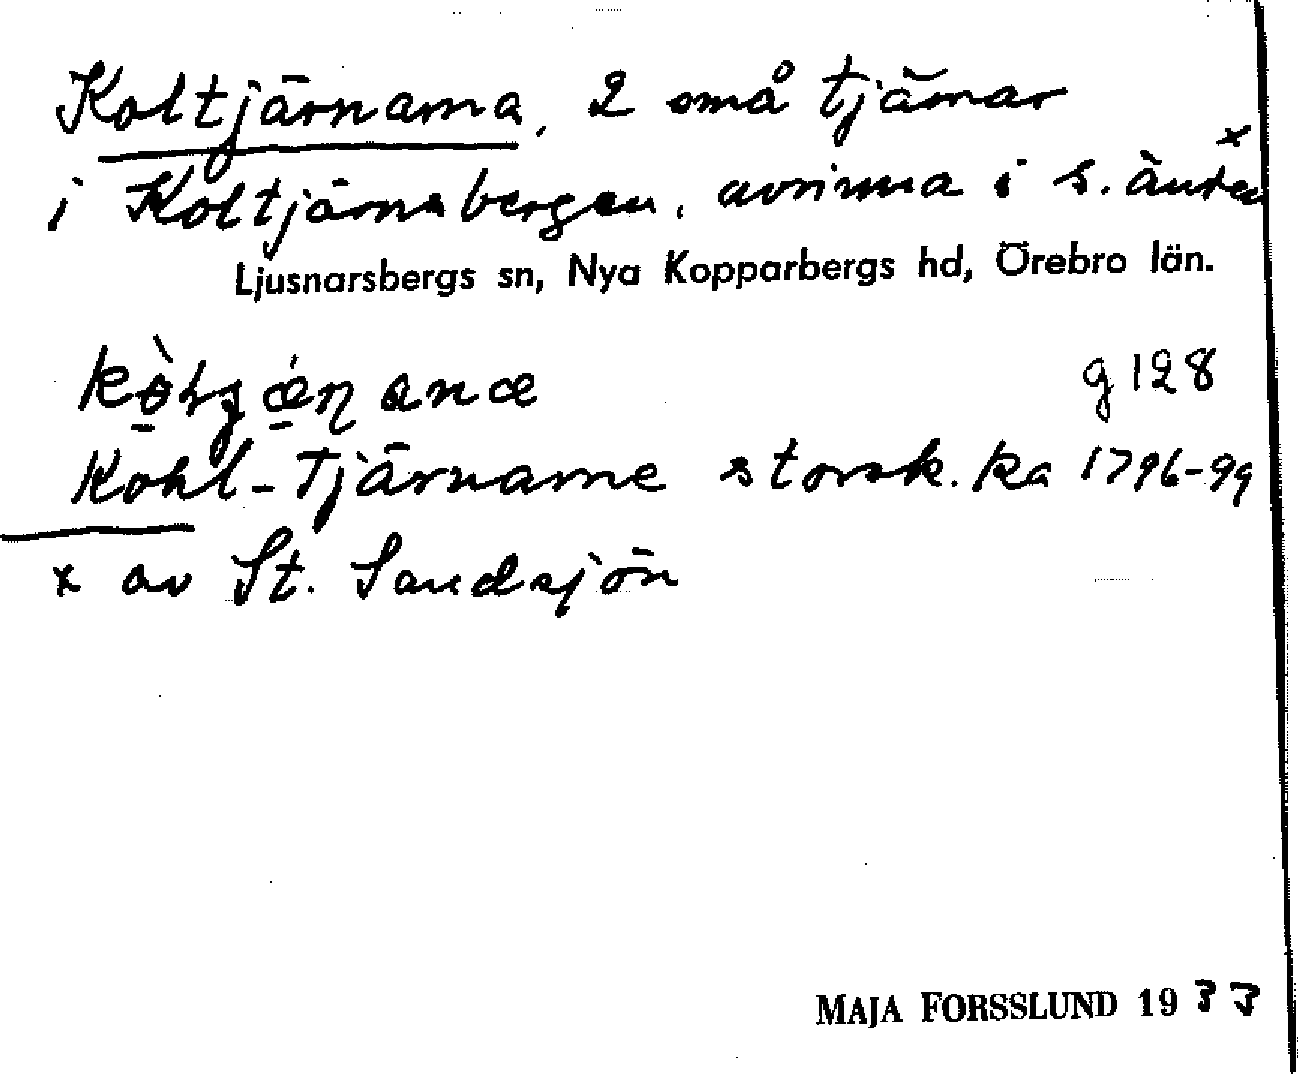 Koltjärnarna, 2 små tjärnar
i Koltjärnsbergen, avrinna i s. änden x
Ljusnarsbergs sn, Nya Kopparbergs hd, Örebro län.
g 128
Kohl-Tjärnarne storsk. ka 1796-99
x av St. Sandsjön
MAJA FORSSLUND 1933